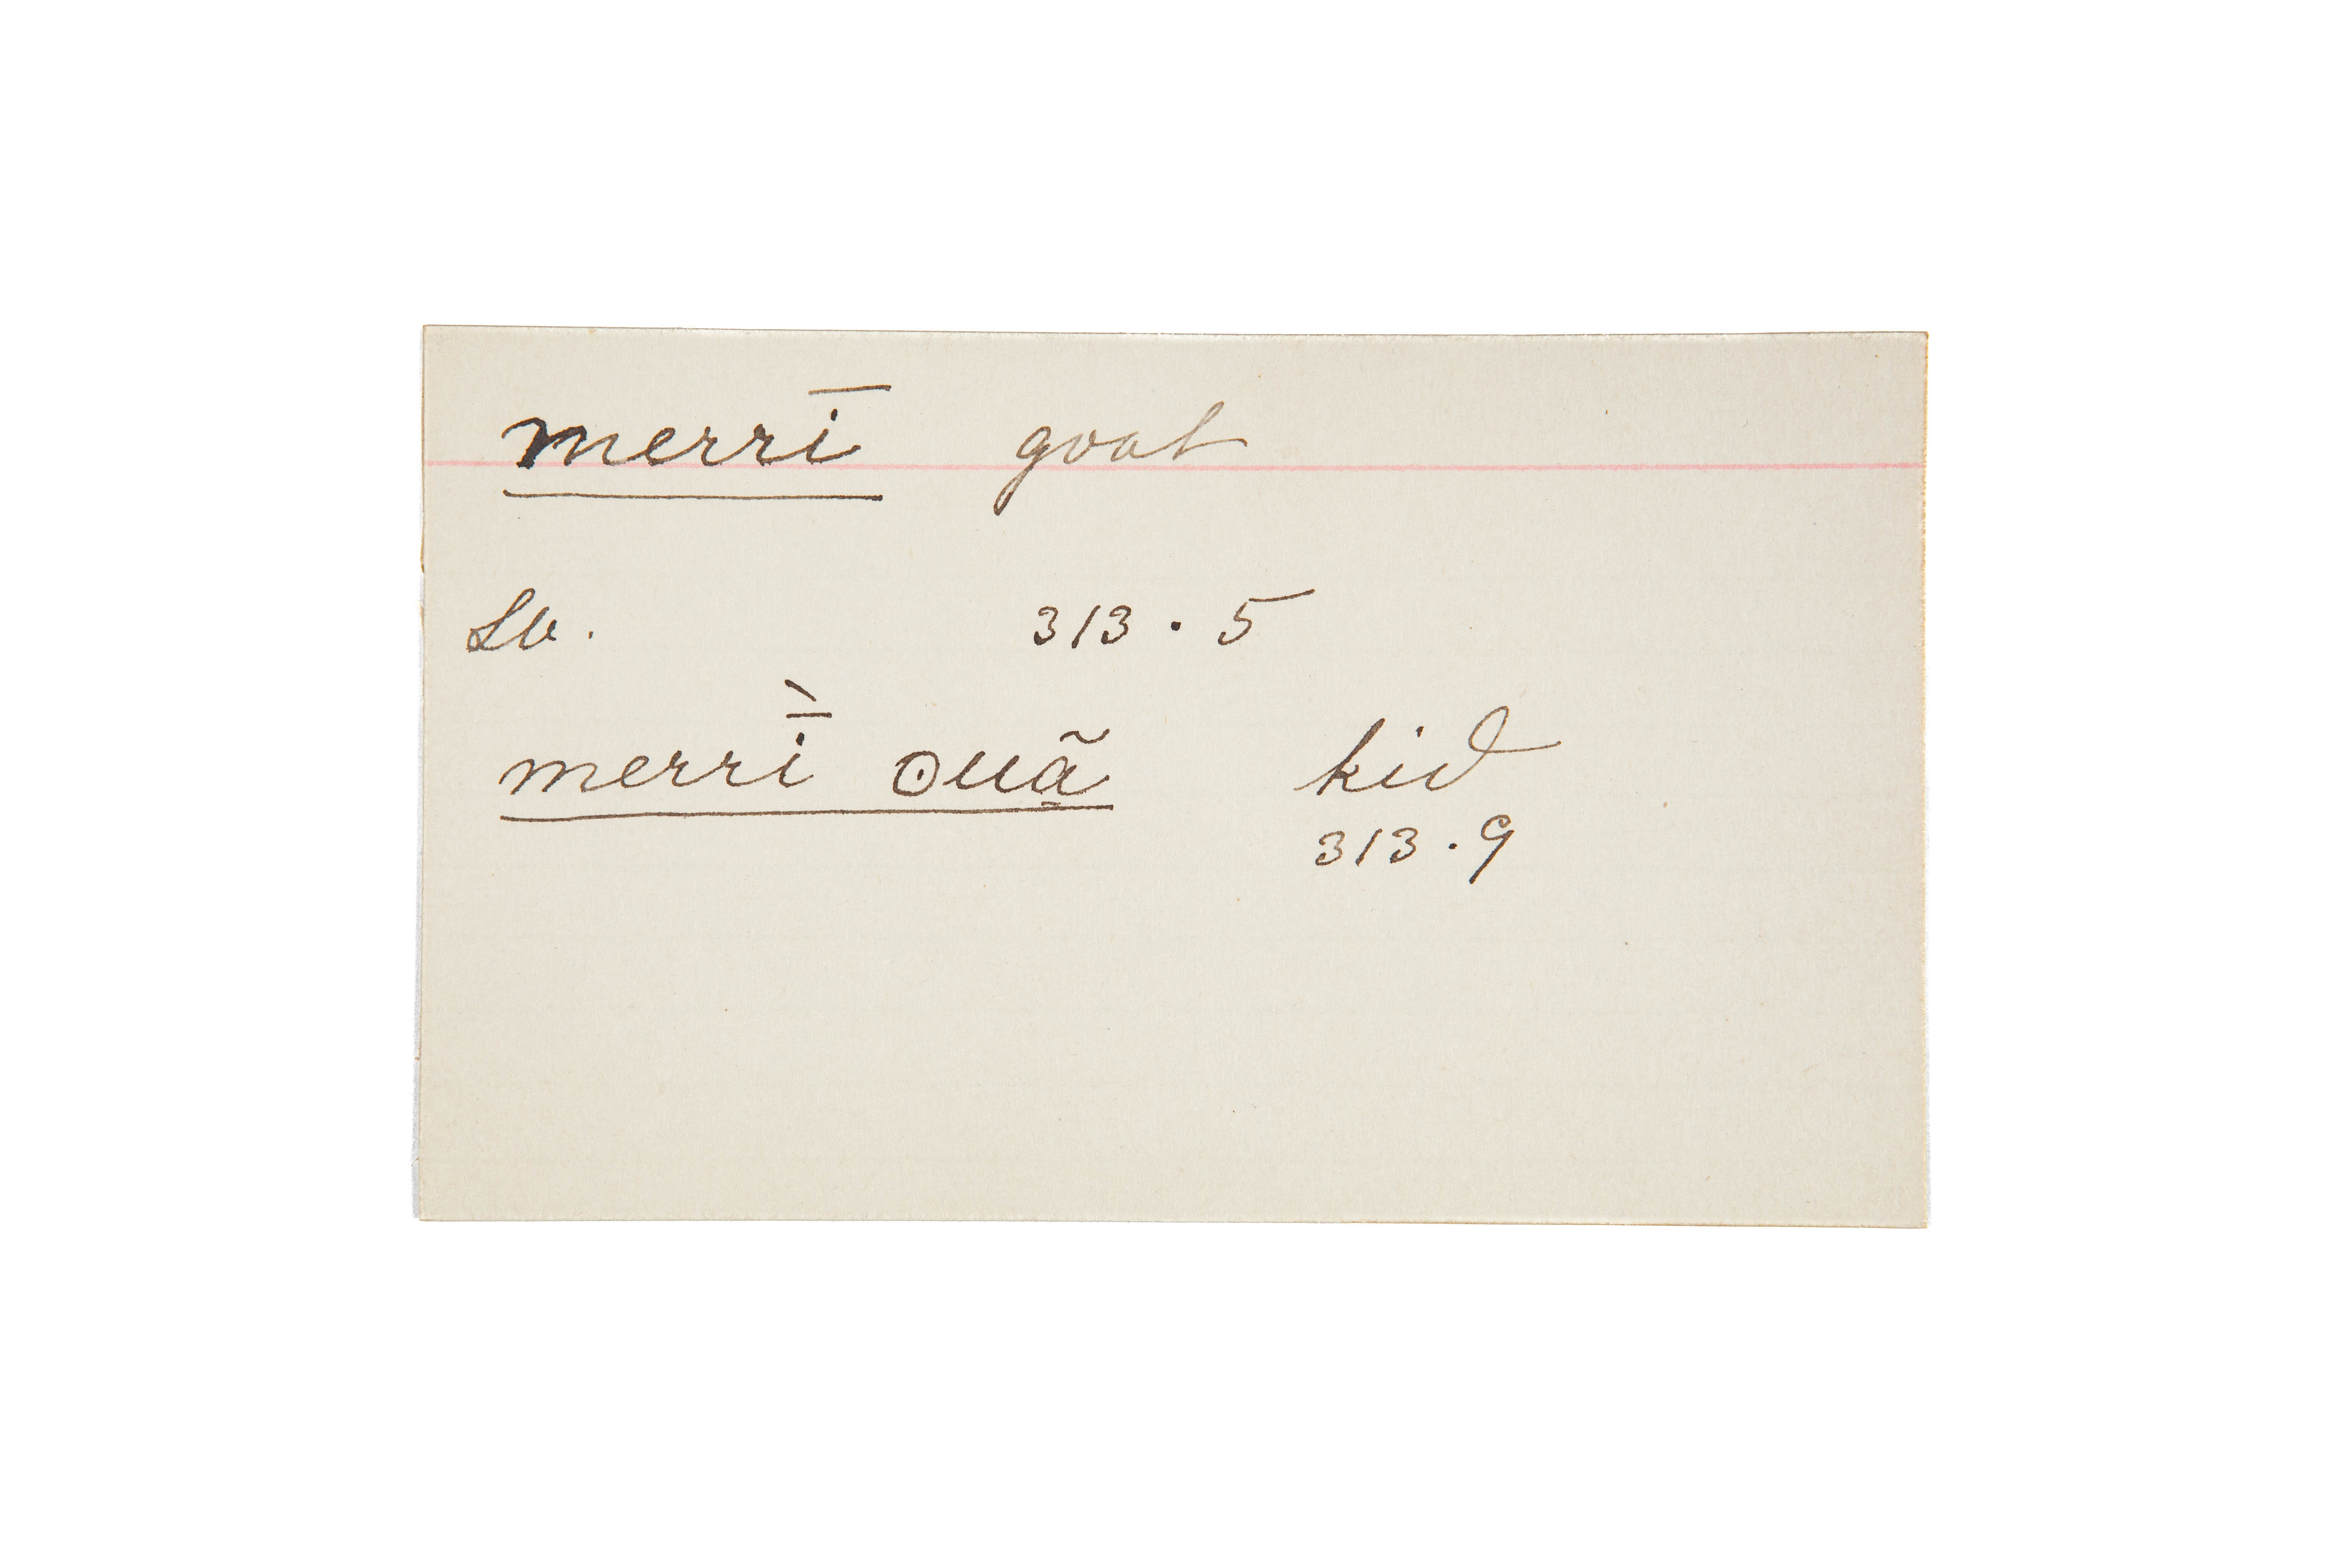 merrī goat
Lv. 313 . 5
merrī̀ ʘuã̱ kid
313 . 9